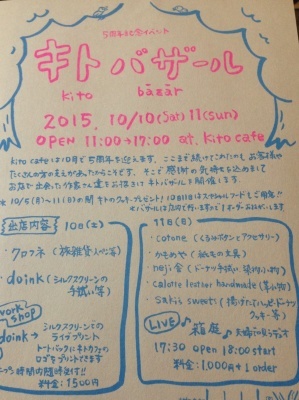 5周年記念イベント
キトバザール
kito bāzār
2015. 10/10(Sat) 11(sun)
OPEN 11:00→17:00 at. kito cafe
kito cafeは10月で5周年を迎えます。ここまで続けてこれたのもお客様や
たくさんの方の支えがあったからこそです。そこで感謝の気持ちを込めまして
お店で出会った作家さん達をお招きしキトバザールを開催します。
出店内容 10日(土)
・クロフネ(旅雑貨
・doink(シルクスクリーンの
手拭い等)
work shop
doink→ シルクスクリーンでの
ライブプリント
トートバックにキトカフェの
ロゴをプリントできます
時間内随時受付!!
料金:1500円
11日(日)
・cotone(くるみボタンとアクセサリー)
・かものや(紙もの文具)
・neji舎
・calorie lesson handmade(革小物)
・saki sweets(
クッキー等)
LIVE♪ 箱庭♪夫婦
17:30 open 18:00 start
料金:1,000円+1 order